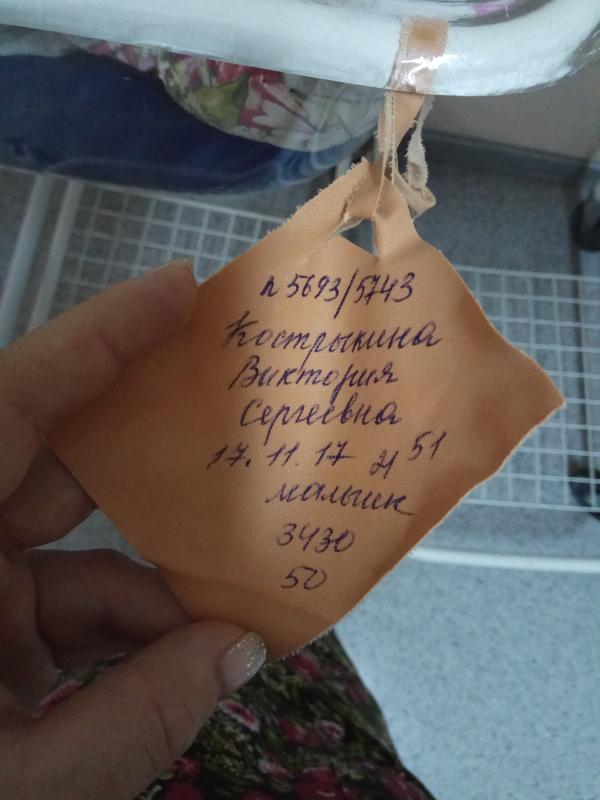 п 5693/5743
Кострыкина
Виктория
Сергеевна
17.11.17 21 51
мальчик
3430
50